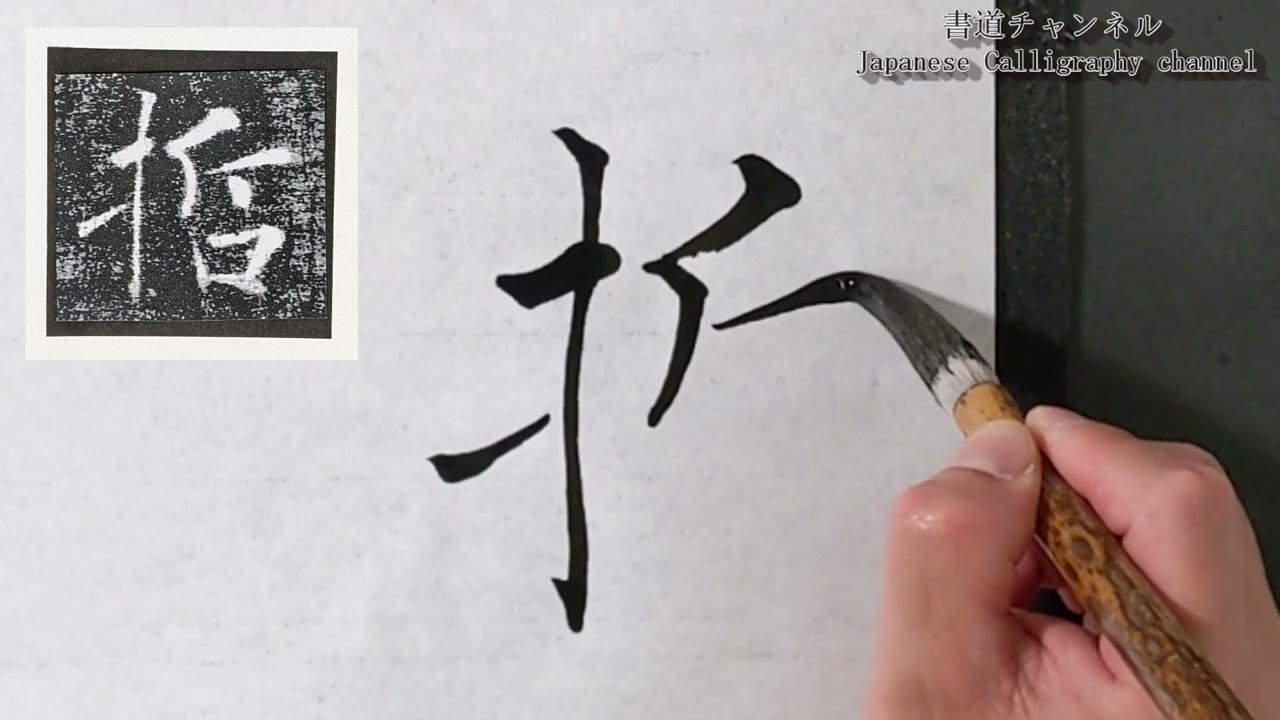 書道チャンネル
Japanese Calligraphy channel
哲